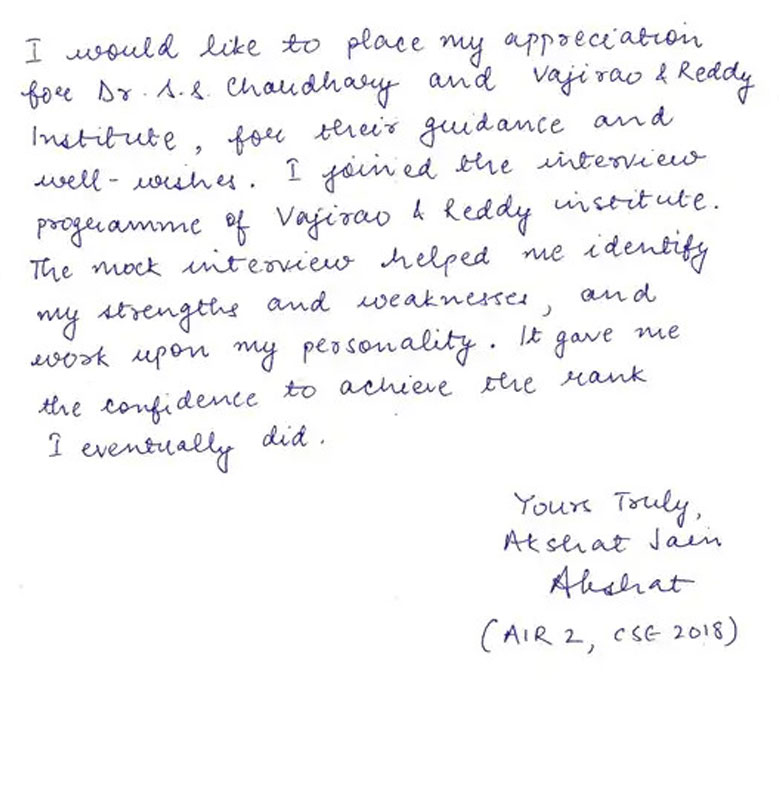 I would like to place my appreciation
for Dr. S. S. Chaudhary and Vajirao & Reddy
Institute, for their guidance and
well-wishes. I joined the interview
programme of Vajirao & Reddy institute.
The mock interview helped me identify
my strengths and weaknesses, and
work upon my personality. It gave me
the confidence to achieve the rank
I eventually did.
Yours Truly,
Akshat Jain
Akshat
(AIR 2, CSE 2018)